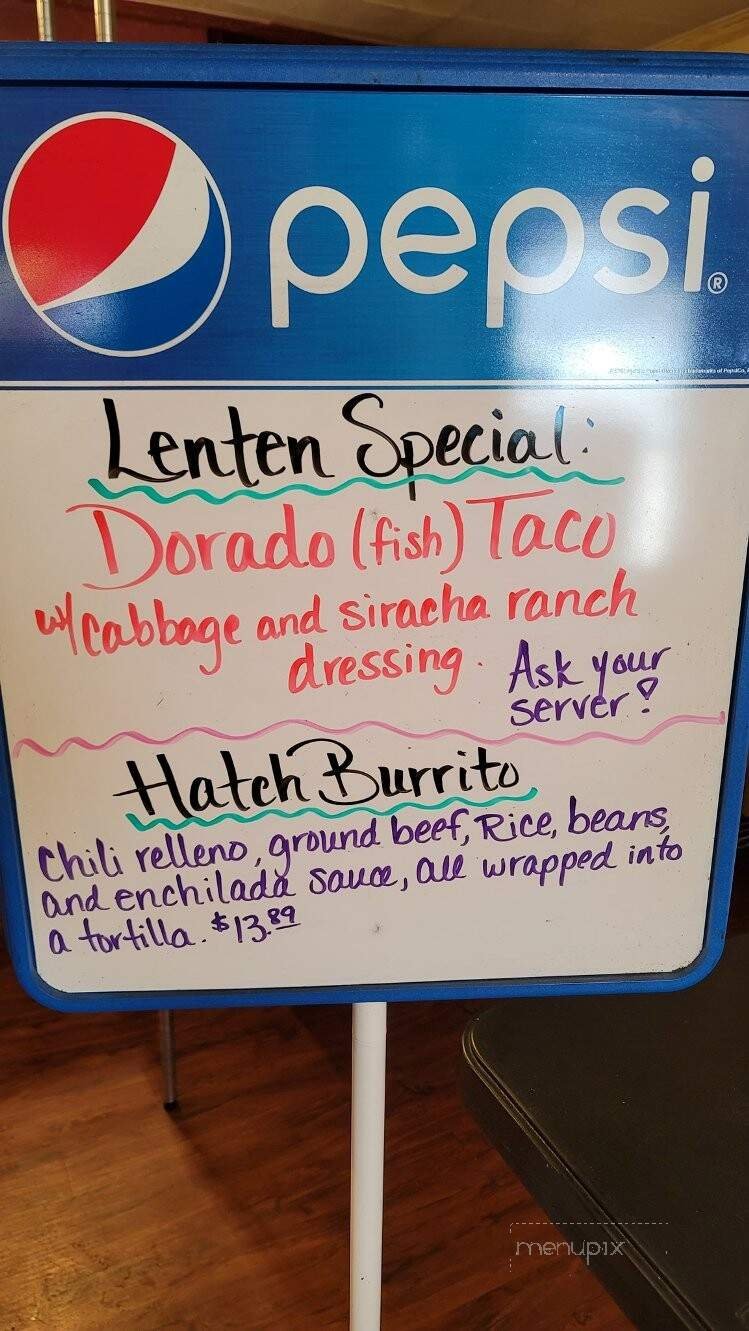 pepsi®
Lenten Special:
Dorado (fish) Taco
w/ cabbage and siracha ranch
dressing.
Ask your
server!
Hatch Burrito
Chili relleno, ground beef, Rice, beans,
and enchilada sauce, all wrapped into
a tortilla. $13.89
menupix